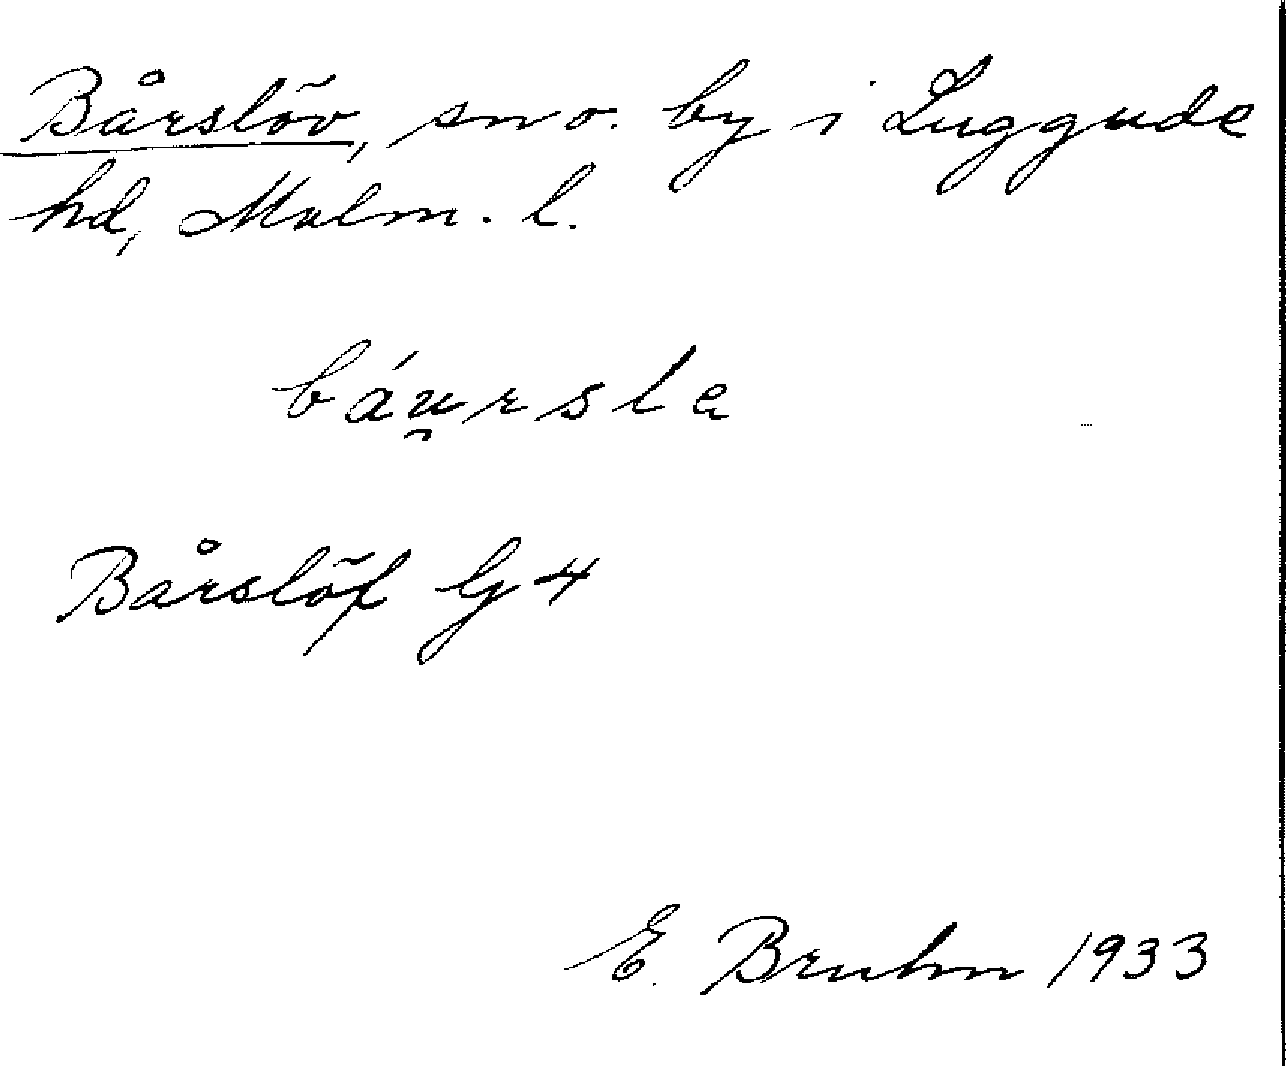 Bårslöv, sno. by i Luggude
hd, Malm. l.
báu̯rsla
Bårslöf G4
E. Bruhn 1933